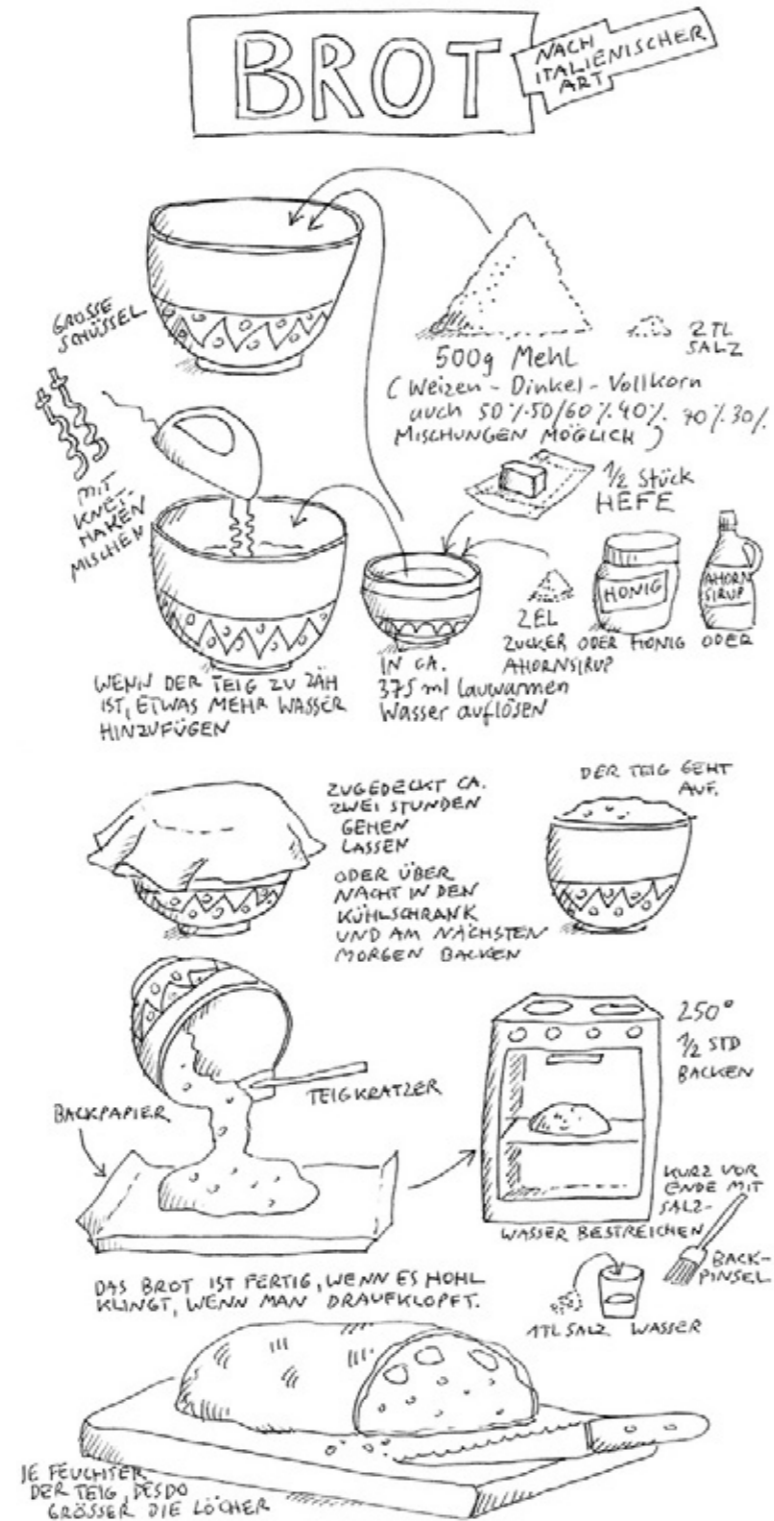 BROT
NACH
ITALIENISCHER
ART
GROSSE
SCHÜSSEL
500g Mehl
2 TL
SALZ
( Weizen - Dinkel - Vollkorn
auch 50%.50/60%.40%. 70%.30%.
MISCHUNGEN MÖGLICH )
MIT
KNET-
HAKEN
MISCHEN
1/2 Stück
HEFE
2EL
ZUCKER ODER HONIG ODER
AHORNSIRUP
HONIG
AHORN
SIRUP
IN CA.
375 ml lauwarmen
Wasser auflösen
WENN DER TEIG ZU ZÄH
IST, ETWAS MEHR WASSER
HINZUFÜGEN
ZUGEDECKT CA.
ZWEI STUNDEN
GEHEN
LASSEN
ODER ÜBER
NACHT IN DEN
KÜHLSCHRANK
UND AM NÄCHSTEN
MORGEN BACKEN
DER TEIG GEHT
AUF.
TEIGKRATZER
BACKPAPIER
250°
1/2 STD
BACKEN
KURZ VOR
ENDE MIT
SALZ-
WASSER BESTREICHEN
BACK-
PINSEL
1TL SALZ WASSER
DAS BROT IST FERTIG, WENN ES HOHL
KLINGT, WENN MAN DRAUFKLOPFT.
JE FEUCHTER
DER TEIG, DESDO
GRÖSSER DIE LÖCHER